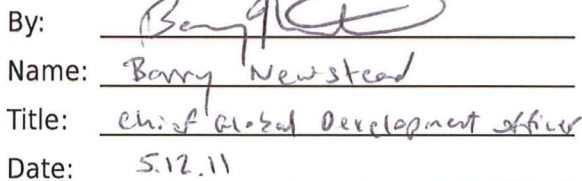 By:
Name: Barry Newstead
Title: Chief Global Development Officer
Date: 5.12.11